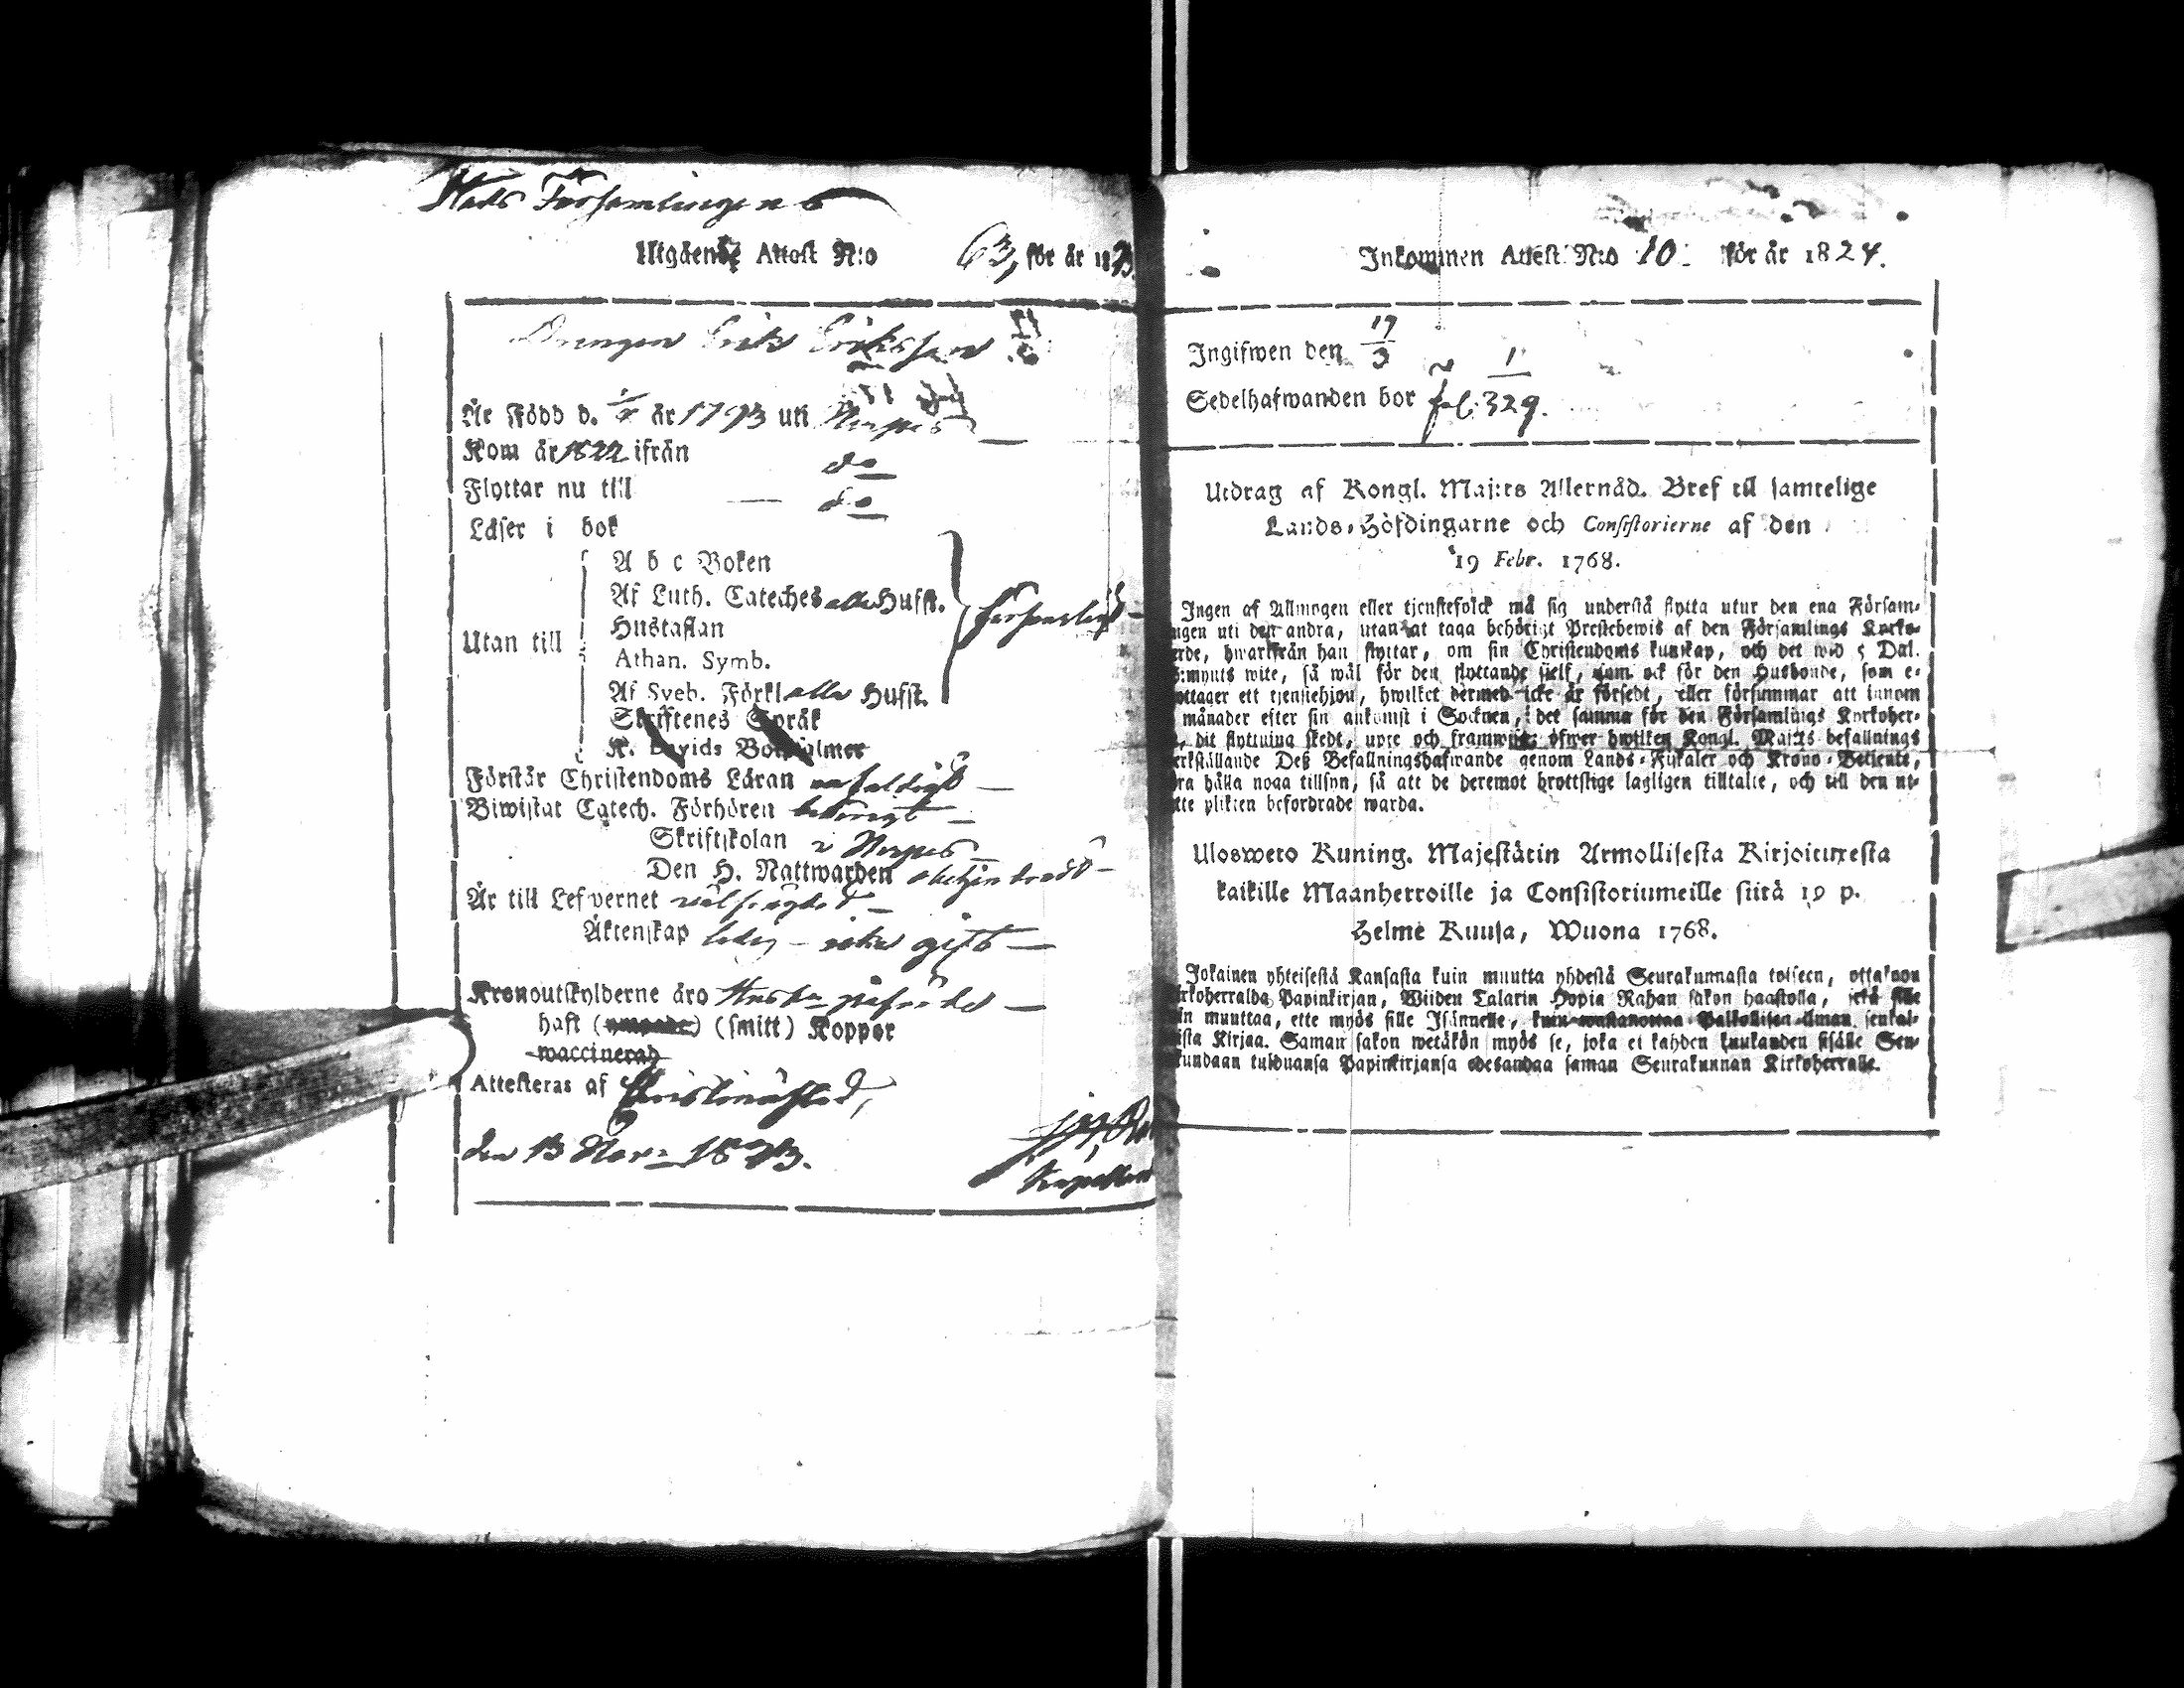 Stads Församlingens
Utgående Attest N:o 63, för år 1823.
Drengen Erik Eriksson
År Född d. år 1793 uti Nerpes
Kom år 1822 ifrån do
Flyttar nu till do
Läser i bok
A b c Boken
Af Luth. Cateches alla Hufst.
Hustaflan
Utan till
Athan. Symb.
Af Sveb. Förkl alla Hufst.
försvarligt
Skriftenes Språk
K. Davids Botpsalmer
Förstår Christendoms Läran enfaldigt
Biwistat Catech. Förhören behörigt
Skriftskolan i Nerpes
Den H. Nattwarden obehindradt
År till Lefvernet välfrägdad
Äktenskap ledig – icke gift
Kronoutskylderne äro påförde
haft (ympade) (smitt) Koppor
waccinerad
Attesteras af Christinæstad,
den 13 Nov: 1823.
Kapellan
Inkommen Attest N:o 10. för år 1824.
Ingifwen den 17/3
Sedelhafwanden bor fol. 329. 1
Utdrag af Kongl. Maj:ts Allernåd. Bref til samtelige
Lands-Höfdingarne och Consistorierne af den
19 Febr. 1768.
Ingen af Allmogen eller tjenstefolck må sig understå flytta utur den ena Försam-
ngen uti den andra, utan at taga behörigt Prestebewis af den Församlings Kyrko-
erde, hwarifrån han flyttar, om sin Christendoms kunskap, och det wid 5 Dal.
S:mynts wite, så wäl för den flyttande sielf, som ock för den Husbonde, som e-
mottager ett tjenstehjon, hwilket dermed icke är försedt, eller försummar att innom
månader efter sin ankomst i Socknen, det samma för den Församlings Kyrkoher-
, dit flyttning skedt, upte och framwisa; öfwer hwilken Kongl. Maj:ts befallnings
erkställande Deß Befallningshafwande genom Lands-Fiskaler och Krono-Betjente,
öra hålla noga tillsyn, så att de deremot brottslige lagligen tilltalte, och till den ut-
atte plikten befordrade warda.
Uloswето Kuning. Majestätin Armollisesta Kirjoituxesta
kaikille Maanherroille ja Consistoriumeille siitä 19 p.
Helme Kuusa, Wuona 1768.
Jokainen yhteisestä Kansasta kuin muutta yhdestä Seurakunnasta toiseen, ottakoon
irkoherralda Papinkirjan, Wiiden Talarin Hopia Rahan sakon haastolla, jekä sille
uin muuttaa, ette myös sille Isännelle, kuin wastanottaa Palkollisen ilman senkal-
ista Kirjaa. Saman sakon wetäkön myös se, joka ei kahden kuukauden sisälle Seu-
akundaan tulduansa Papinkirjansa edesandaa saman Seurakunnan Kirkoherralle.